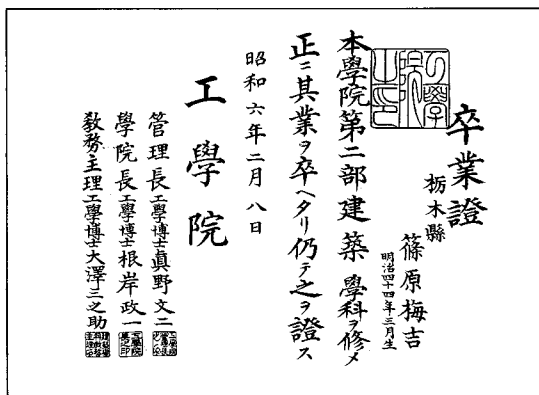 卒業證
栃木縣
篠原梅吉
明治四十四年三月生
本學院第二部建築學科ヲ修メ
正ニ其業ヲ卒ヘタリ仍テ之ヲ證ス
昭和六年二月八日
工學院
管理長工學博士眞野文二
學院長工學博士根岸政一
敎務主理工學博士大澤三之助
工學院之印